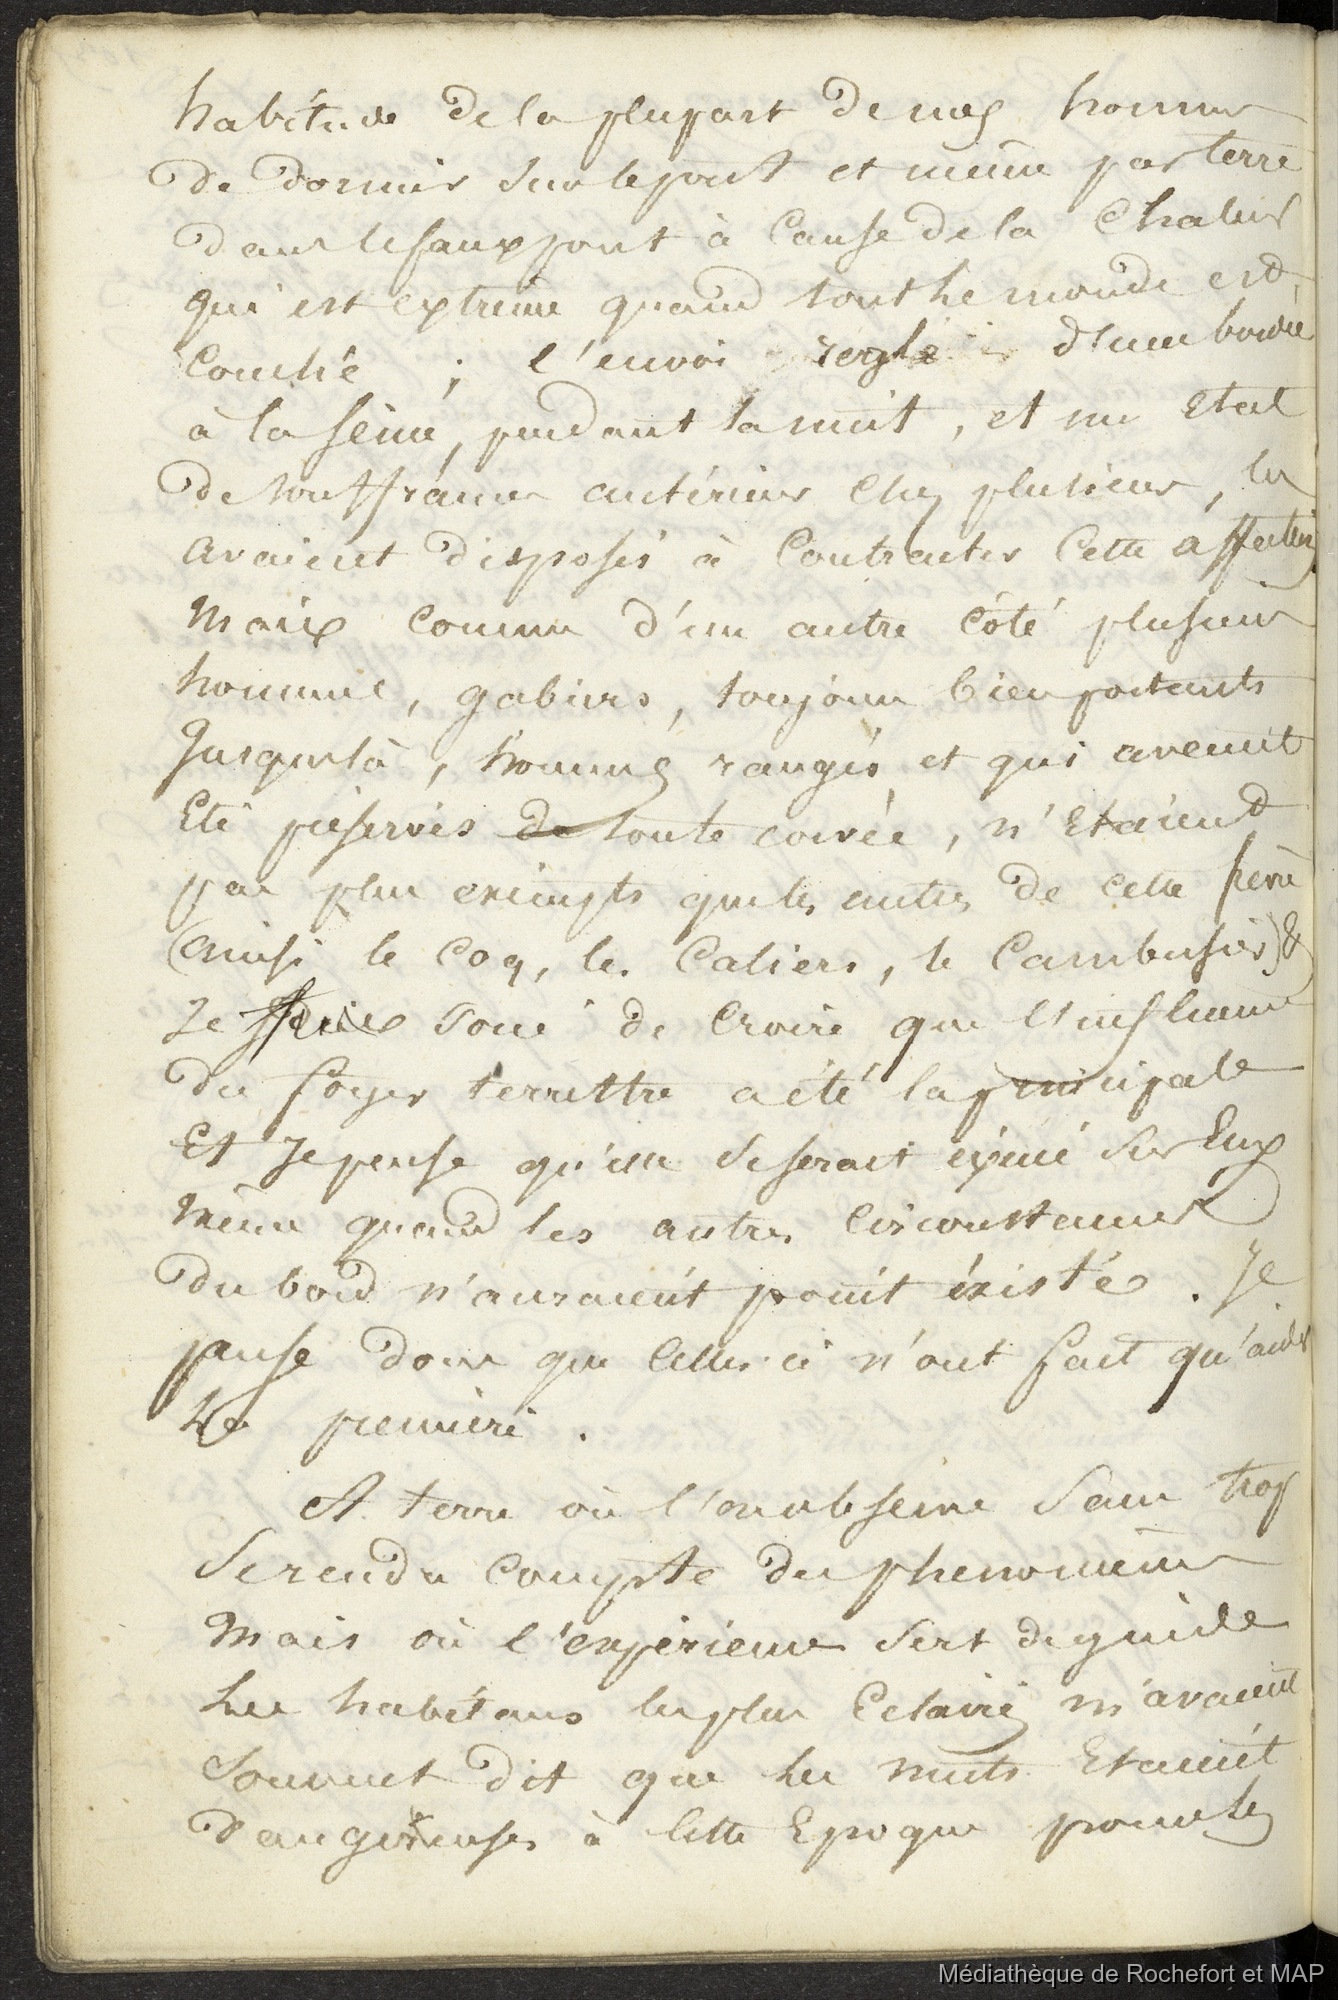 habitude de la plupart de nos hommes
de dormir sur le pont et même par terre
dans le faux pont à cause de la chaleur
qui est extrême quand tout le monde est
couché ; l'envoi d'une bordée
à la seine, pendant la nuit, et un Etat
de souffrance antérieur chez plusieurs, les
avaient disposés à contracter cette affection
Mais comme d'un autre côté plusieurs
hommes, gabiers, toujours bien portants
Jusques là, hommes rangés et qui avaient
Eté préservés de toute corvée, n'Etaient
pas plus exempts que les autres de cette fièvre
(ainsi le Coq, les Caliers, le Cambusier) &
Je suis donc de croire que l'influence
du foyer terrestre a été la principale
Et Je pense qu'elle se serait sur Eux
Même quand les autres circonstances
du bord n'auraient point éxisté. Je
pense donc que celles ci n'ont fait qu'aider
La première.
A terre où l'on observe sans trop
Se rendre compte des phenomènes
Mais où l'expérience sert de guide
Les habitans les plus Eclairés m'avaient
Souvent dit que les nuits Etaient
dangereuses à cette Epoque pour les
Médiathèque de Rochefort et MAP